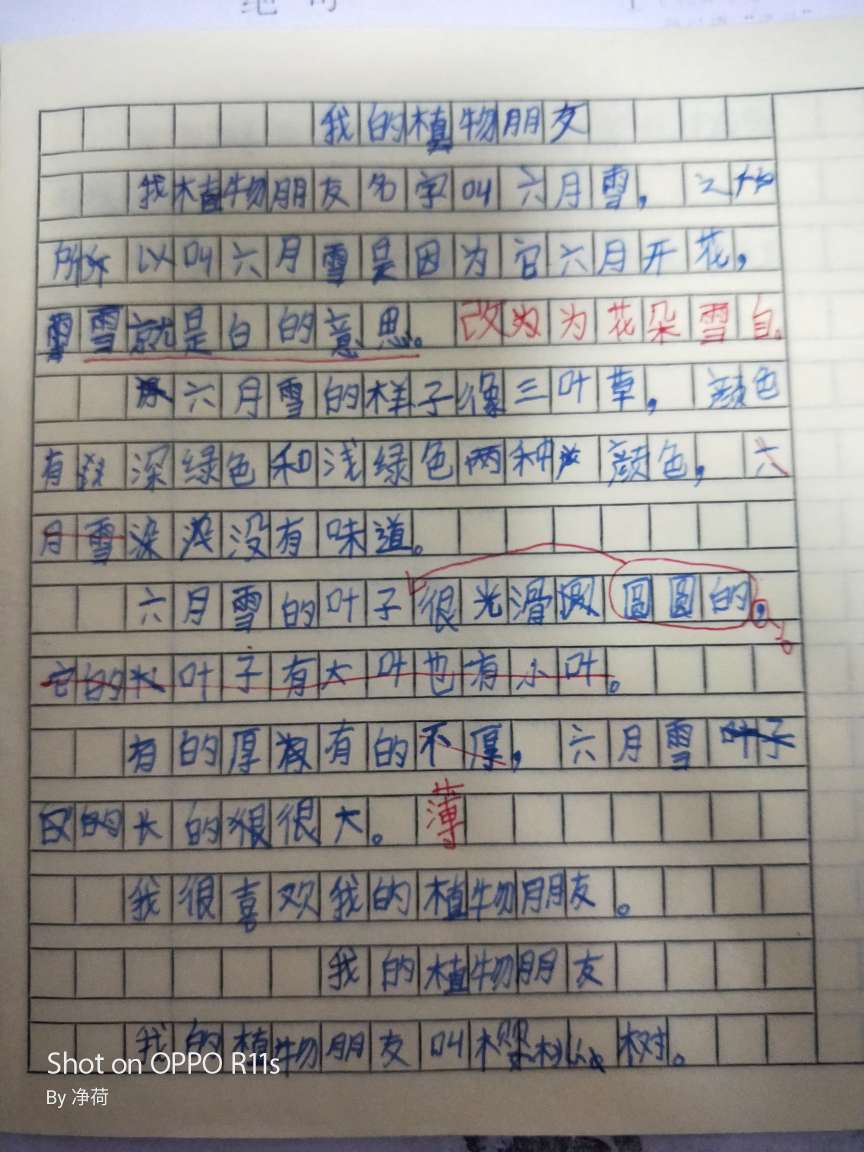 我的植物朋友
我植物朋友名字叫六月雪，之
所以叫六月雪是因为它六月开花，
雪就是白的意思。改为为花朵雪白。
六月雪的样子像三叶草，颜色
有深绿色和浅绿色两种颜色，六
月雪没有味道。
六月雪的叶子很光滑圆圆的，。
它的叶子有大叶也有小叶。
有的厚有的不厚，六月雪叶子
的长的很很大。薄
我很喜欢我的植物朋友。
我的植物朋友
我的植物朋友叫樱桃树。
Shot on OPPO R11s
By 净荷